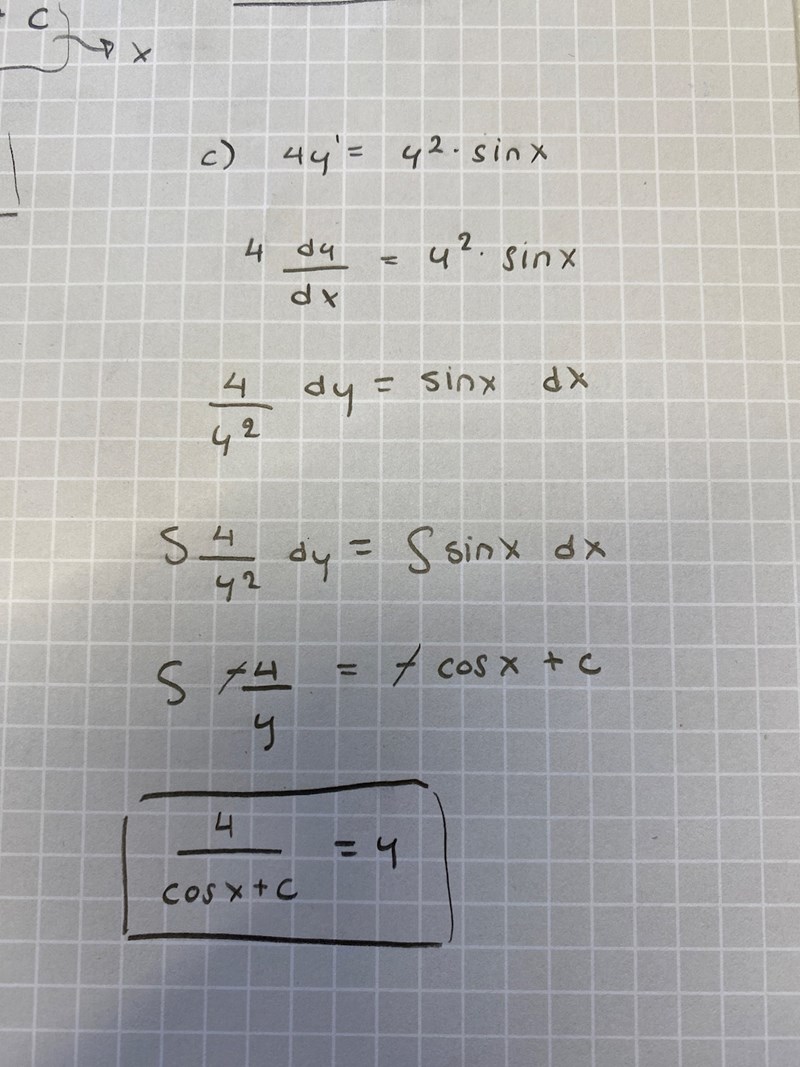 C
→ x
c) 4y' = y² · sinx
4 dy/dx = y² · sinx
4/y² dy = sinx dx
∫ 4/y² dy = ∫ sinx dx
∫ -4/y = - cosx + c
4/(cosx + c) = y